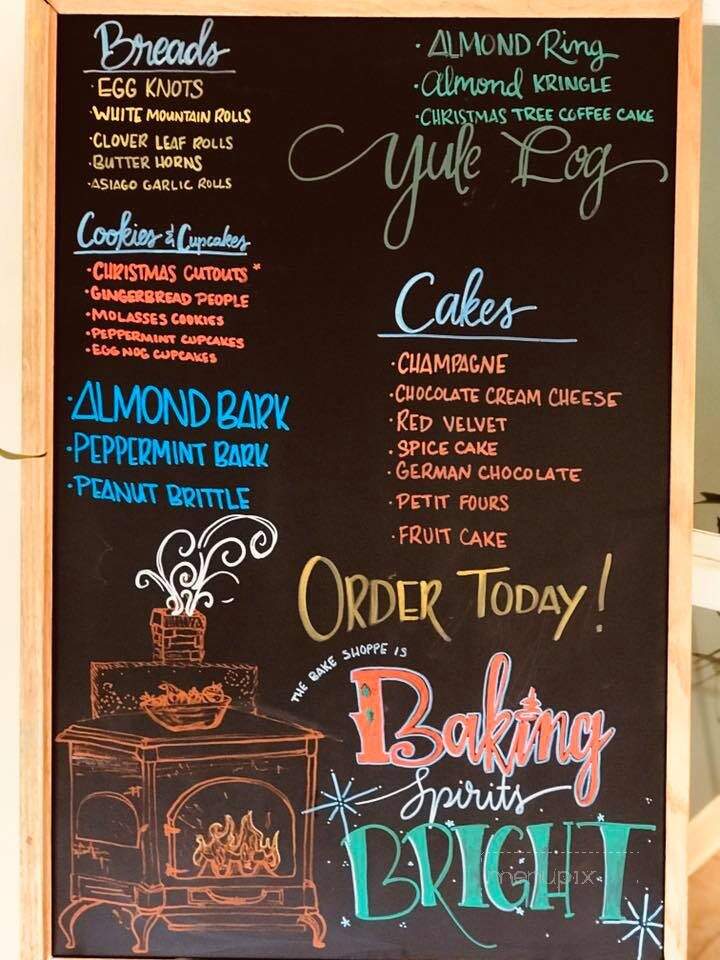 Breads
· EGG KNOTS
· WHITE MOUNTAIN ROLLS
· CLOVER LEAF ROLLS
· BUTTER HORNS
· ASIAGO GARLIC ROLLS
Cookies & Cupcakes
· CHRISTMAS CUTOUTS *
· GINGERBREAD PEOPLE
· MOLASSES COOKIES
· PEPPERMINT CUPCAKES
· EGG NOG CUPCAKES
· ALMOND BARK
· PEPPERMINT BARK
· PEANUT BRITTLE
· ALMOND Ring
· Almond KRINGLE
· CHRISTMAS TREE COFFEE CAKE
Yule Log
Cakes
· CHAMPAGNE
· CHOCOLATE CREAM CHEESE
· RED VELVET
· SPICE CAKE
· GERMAN CHOCOLATE
· PETIT FOURS
· FRUIT CAKE
ORDER TODAY!
THE BAKE SHOPPE IS
Baking
Spirits
BRIGHT
menupix